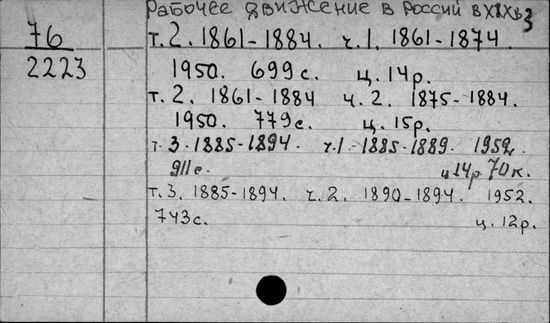 Рабочее движение в России в XIX в 3
76
т.2. 1861-1884. ч.1. 1861-1874.
2223
1950. 699 с. ц. 14р.
т.2. 1861-1884 ч.2. 1875-1884.
1950. 779с. ц. 15р.
т.3. 1885-1894. ч.1. 1885-1889. 1952.
911с. ц14р 70к.
т.3. 1885-1894. ч.2. 1890-1894. 1952.
743с. ц. 12р.